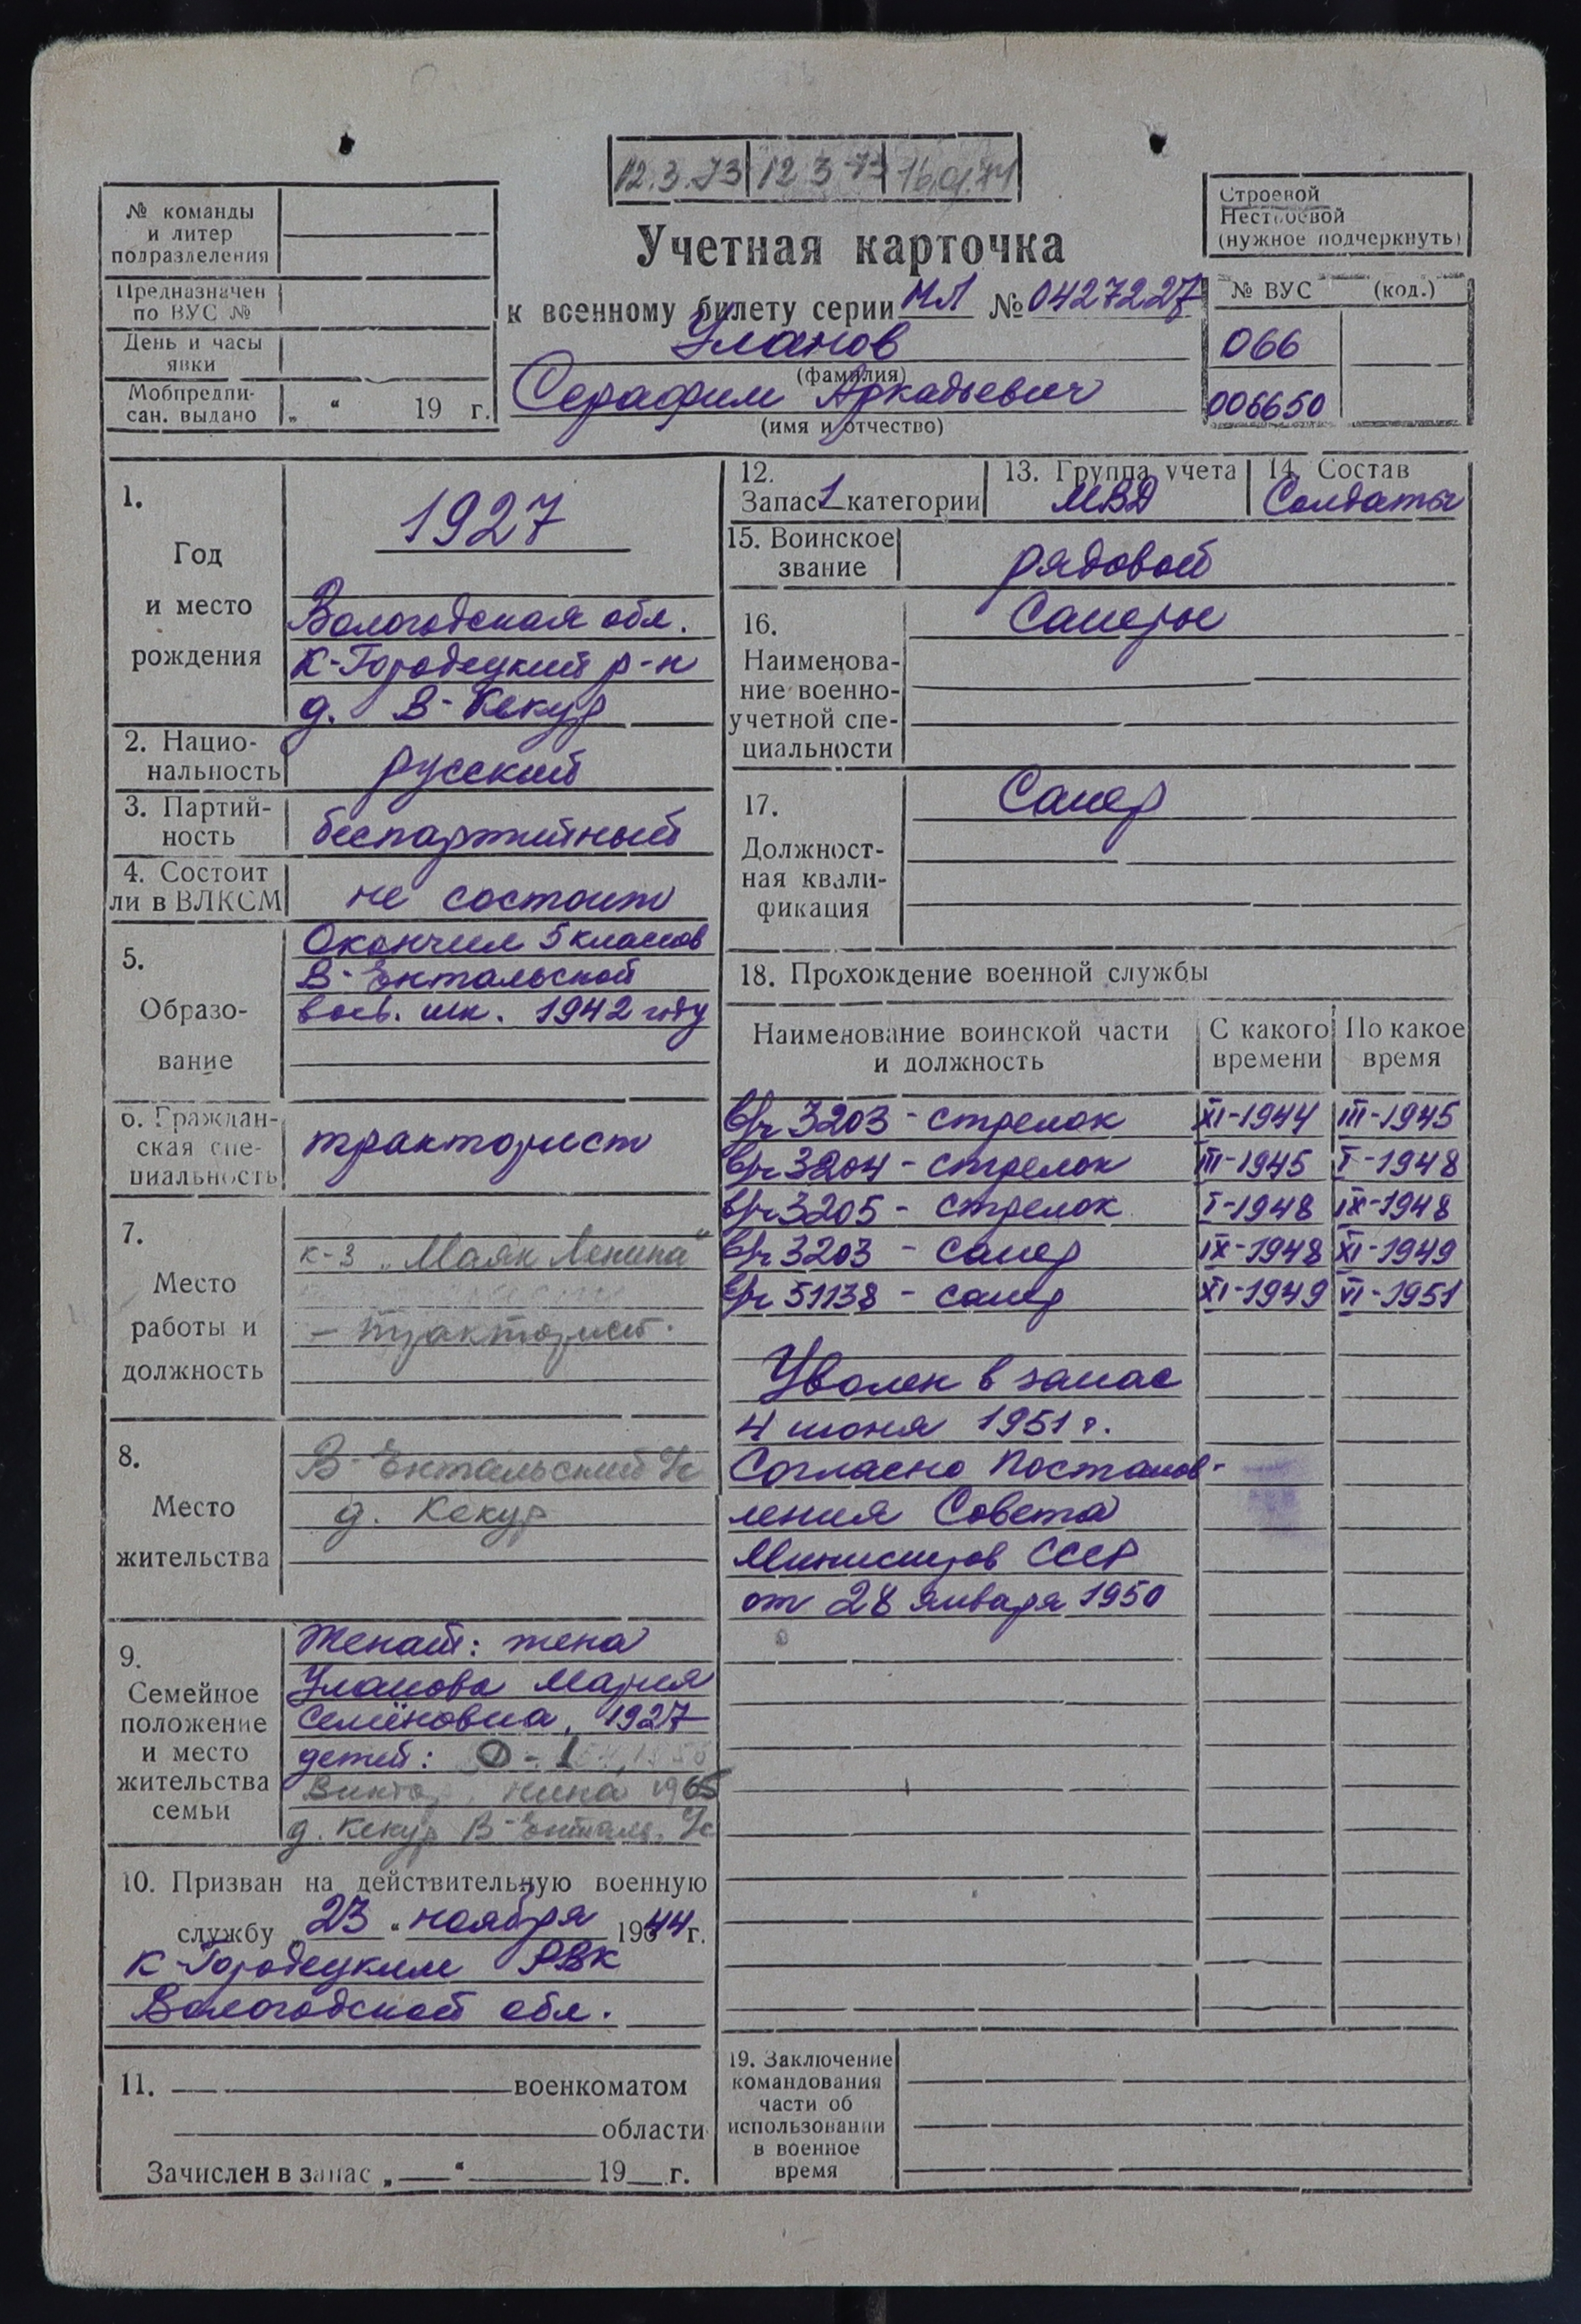 12.3.73 12 3 73
№ команды
и литер
подразделения
Предназначен
по ВУС №
День и часы
явки
Мобпредпи-
сан. выдано „ “ 19 г.
Учетная карточка
к военному билету серии МЛ № 0427227
Уланов
(фамилия)
Серафим Аркадьевич
(имя и отчество)
Строевой
Нестроевой
(нужное подчеркнуть)
№ ВУС (код.)
066
006650
1.
Год
и место
рождения
1927
Вологодская обл.
К-Городецкий р-н
д. В-Кекур
2. Нацио-
нальность
русский
3. Партий-
ность
беспартийный
4. Состоит
ли в ВЛКСМ
не состоит
5.
Образо-
вание
Окончил 5 классов
В-Ентальской
восъ. шк. 1942 году
6. Граждан-
ская спе-
циальность
тракторист
7.
Место
работы и
должность
к-з „Маяк Ленина“
- тракторист.
8.
Место
жительства
В-Ентальский с/с
д. Кекур
9.
Семейное
положение
и место
жительства
семьи
Женат: жена
Уланова Мария
Семёновна, 1927
детей:
Нина 1965
д. Кекур В-Енталь. с/с
10. Призван на действительную военную
службу „23“ ноября 1944 г.
К-Городецким РВК
Вологодской обл.
11. военкоматом
области
Зачислен в запас „ “ 19 г.
12.
Запас 1 категории
13. Группа учета
МВД
14. Состав
Солдаты
15. Воинское
звание
рядовой
16.
Наименова-
ние военно-
учетной спе-
циальности
Саперы
17.
Должност-
ная квали-
фикация
Сапер
18. Прохождение военной службы
Наименование воинской части
и должность
С какого
времени
По какое
время
в/ч 3203 - стрелок XI-1944 III-1945
в/ч 3204 - стрелок III-1945 I-1948
в/ч 3205 - стрелок I-1948 IX-1948
в/ч 3203 - сапер IX-1948 XI-1949
в/ч 51138 - сапер XI-1949 VI-1951
Уволен в запас
4 июня 1951 г.
Согласно Постанов-
ления Совета
Министров СССР
от 28 января 1950
19. Заключение
командования
части об
использовании
в военное
время